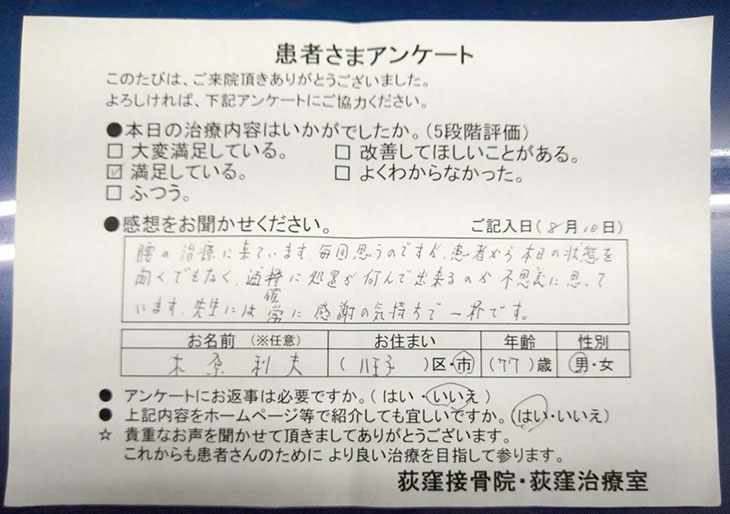 患者さまアンケート
このたびは、ご来院頂きありがとうございました。
よろしければ、下記アンケートにご協力ください。
●本日の治療内容はいかがでしたか。(5段階評価)
□ 大変満足している。 □ 改善してほしいことがある。
☑ 満足している。 □ よくわからなかった。
□ ふつう。
●感想をお聞かせください。 ご記入日(8月10日)
腰の治療に来ています。毎回思うのですが、患者から本日の状態を
聞くでもなく、適格に処置が何んで出来るのか不思議に思って
います。先生には に感謝の気持ちで一杯です。
お名前 (※任意) お住まい 年齢 性別
木原 利夫 (八王子)区・市 (77)歳 男・女
● アンケートにお返事は必要ですか。(はい・いいえ)
● 上記内容をホームページ等で紹介しても宜しいですか。(はい・いいえ)
☆ 貴重なお声を聞かせて頂きましてありがとうございます。
これからも患者さんのために より良い治療を目指して参ります。
荻窪接骨院・荻窪治療室